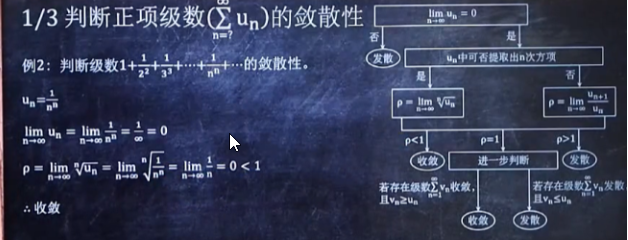 1/3 判断正项级数(∑_{n=?}^{∞} u_n)的敛散性
例2：判断级数1+1/2²+1/3³+⋯+1/nⁿ+⋯的敛散性。
u_n=1/nⁿ
lim_{n→∞} u_n = lim_{n→∞} 1/nⁿ = 1/∞ = 0
ρ = lim_{n→∞} ⁿ√u_n = lim_{n→∞} ⁿ√(1/nⁿ) = lim_{n→∞} 1/n = 0 < 1
∴收敛
lim_{n→∞} u_n = 0
否 是
发散 u_n中可否提取出n次方项
是 否
ρ = lim_{n→∞} ⁿ√u_n ρ = lim_{n→∞} u_{n+1}/u_n
ρ<1 ρ=1 ρ>1
收敛 进一步判断 发散
若存在级数∑_{n=1}^{∞} v_n收敛， 若存在级数∑_{n=1}^{∞} v_n发散，
且v_n≥u_n 且v_n≤u_n
收敛 发散